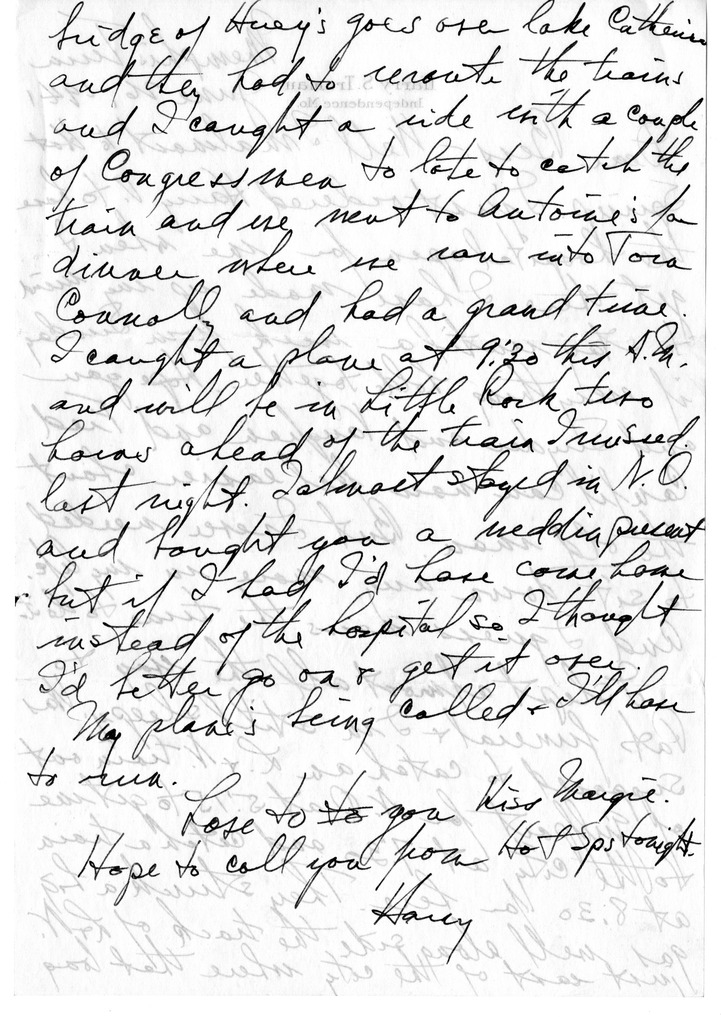 bridge of Huey's goes over lake Catherine
and they had to reroute the trains
and I caught a ride with a couple
of Congressmen to late to catch the
train and we went to Antoine's for
dinner where we ran into Tom
Connally and had a grand time.
I caught a plane at 9:30 this A.M.
and will be in Little Rock two
hours ahead of the train I missed
last night. I almost stayed in N.O.
and bought you a weddin present
but if I had I'd have come home
instead of the hospital so I thought
I'd better go on & get it over.
My plane's being called & I'll have
to run.
Love to to you Kiss Margie.
Hope to call you from Hot Sps tonight.
Harry